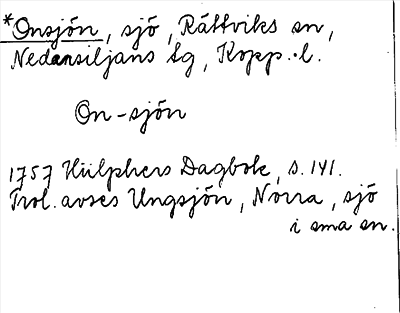 *Onsjön, sjö, Rättviks sn,
Nedansiljans tg, Kopp. l.
On-sjön
1757 Hülphers Dagbok, s. 141.
Trol. avses Ungsjön, Norra, sjö
i sma sn.